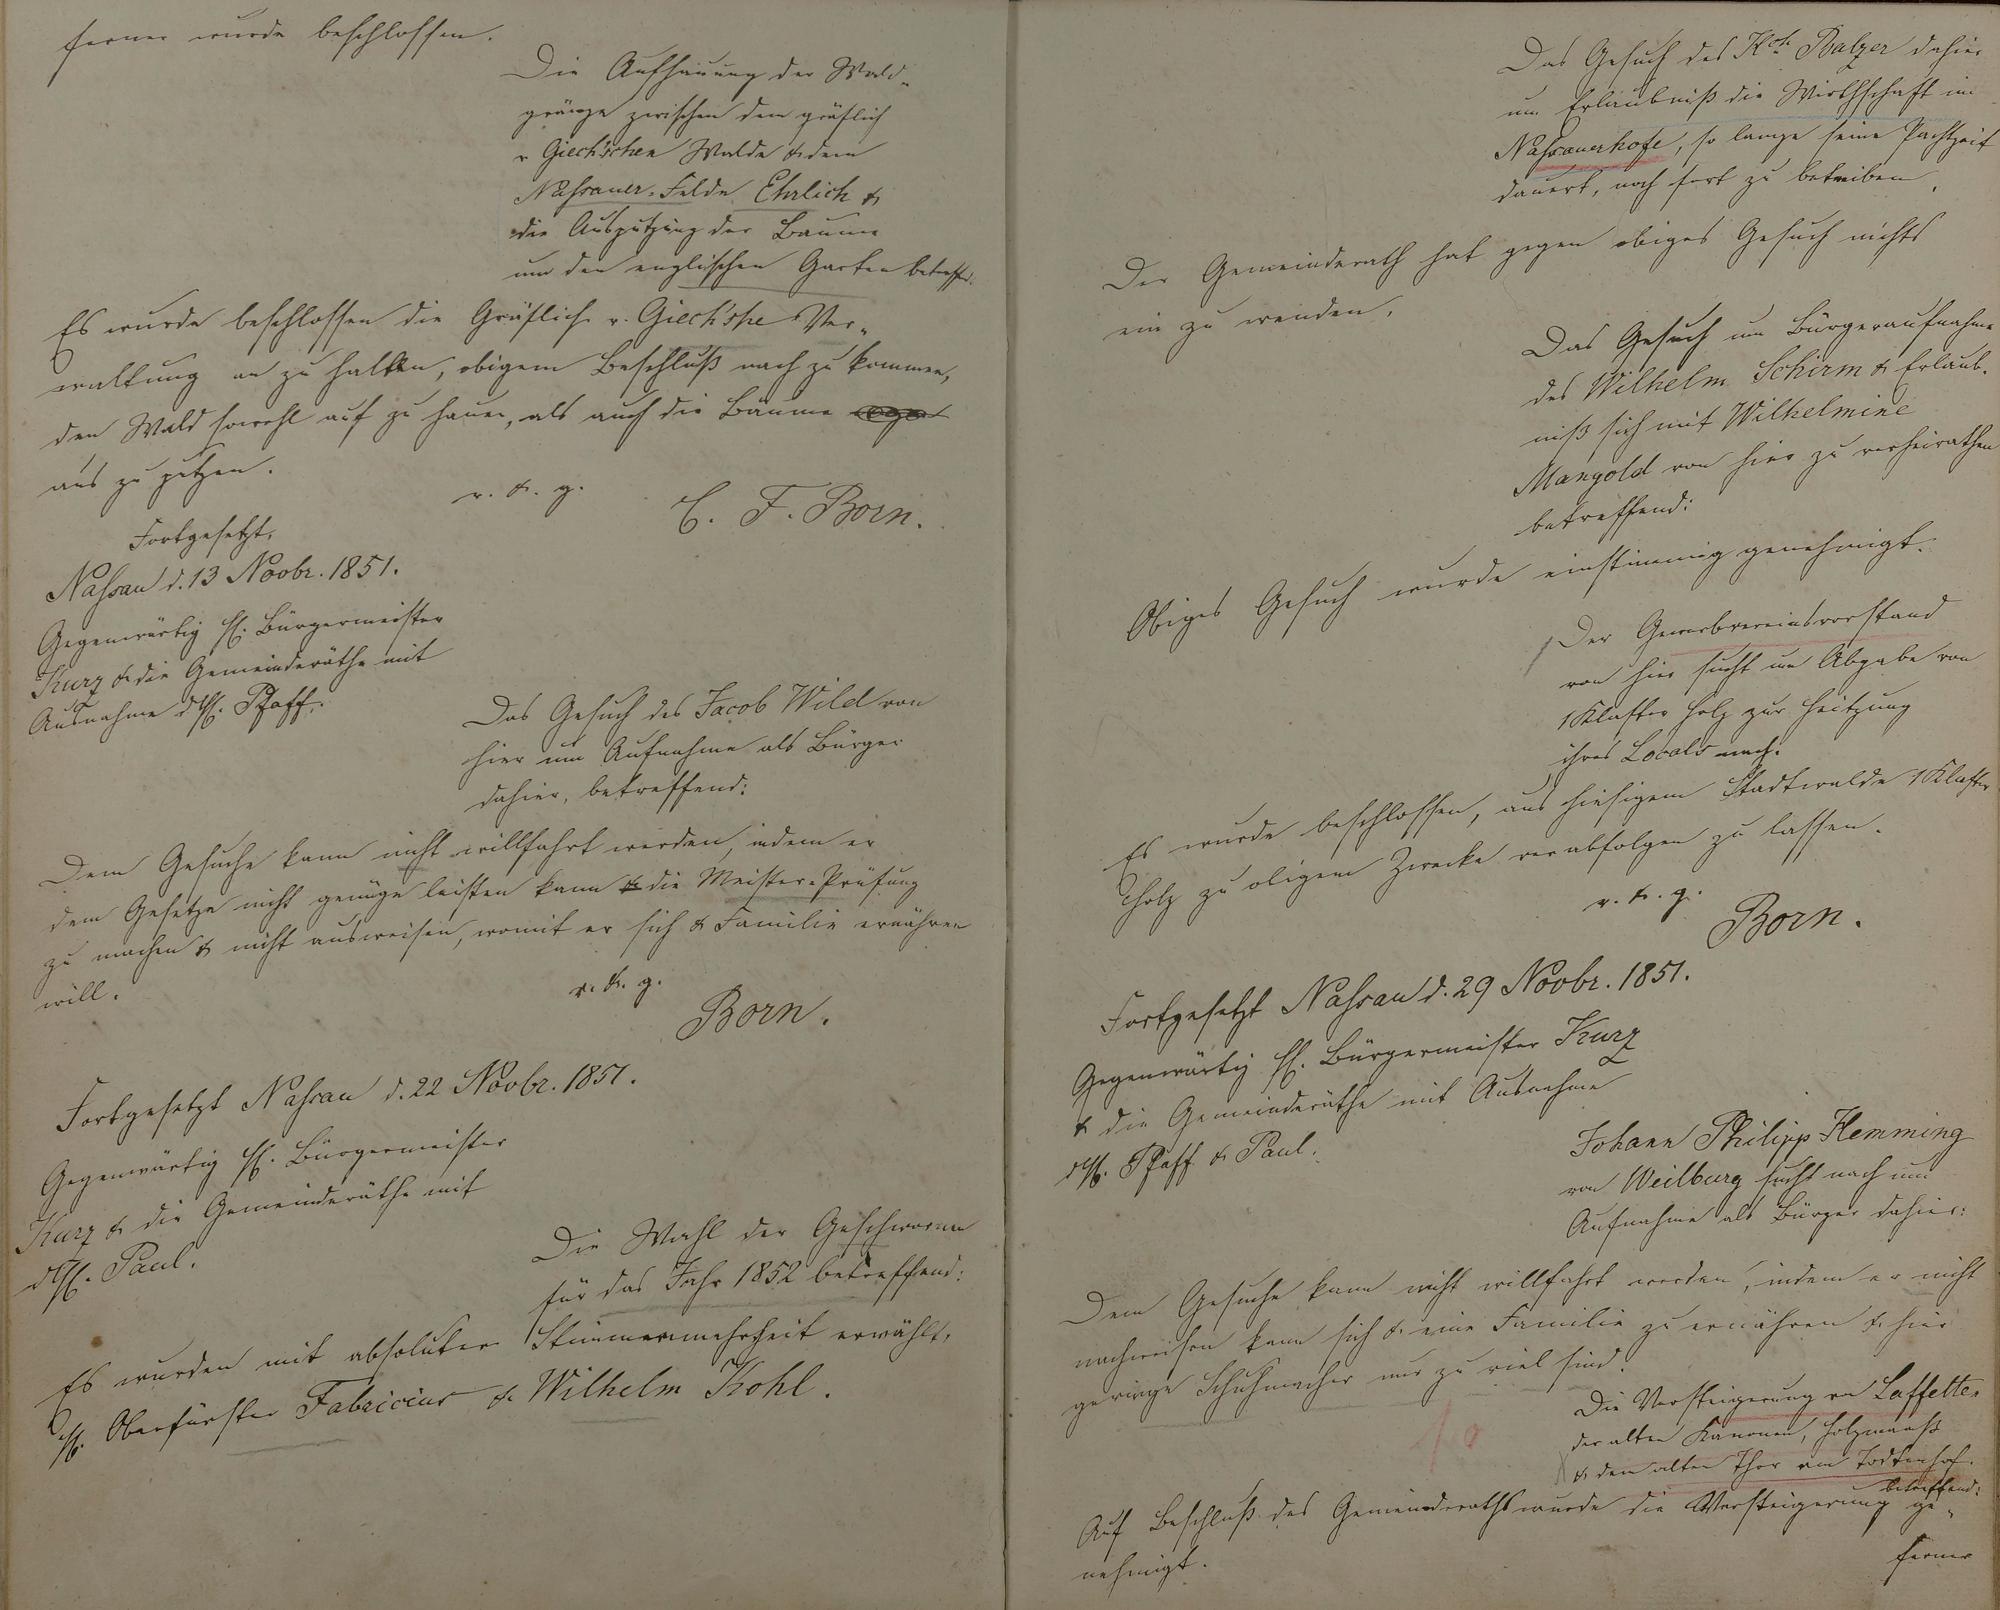 ferner wurde beschlossen.
Die Aufhauung der Wald-
gränze zwischen dem gräflich
v Giech'schen Walde & dem
Nassauer-Felde Ehrlich &
die Ausputzung der Bäume
um den englischen Garten betreffd.
Es wurde beschlossen die Gräflich v. Giech'she Ver-
waltung an zu halten, obigem Beschluß nach zu kommen,
den Wald sowohl auf zu hauen, als auch die Bäume
aus zu putzen.
v. & g.
C. F. Born.
Fortgesetzt,
Nassau d. 13 Novbr. 1851.
Gegenwärtig H. Bürgermeister
Kurz & die Gemeinderäthe mit
Ausnahme d. H. Pfaff.
Das Gesuch des Jacob Wild von
hier um Aufnahme als Bürger
dahier, betreffend:
Dem Gesuche kann nicht willfahrt werden, indem er
dem Gesetze nicht genüge leisten kann & die Meister-Prüfung
zu machen & nicht ausweisen, womit er sich & Familie ernähren
will.
v. & g.
Born.
Fortgesetzt Nassau d. 22 Novbr. 1851.
Gegenwärtig H. Bürgermeister
Kurz & die Gemeinderäthe mit
d H. Paul.
Die Wahl der Geschwornen
für das Jahr 1852 betreffend:
Es wurden mit absoluter Stimmenmehrheit erwählt,
H. Oberförster Fabricius & Wilhelm Kohl.
Das Gesuch des Balzer dahier
um Erlaubniß die Wirthschaft im
Nassauerhofe, so lange seine Pachtzeit
dauert, noch fort zu betreiben.
Der Gemeinderath hat gegen obiges Gesuch nichts
ein zu wenden.
Das Gesuch um Bürgeraufnahme
des Wilhelm Schirm & Erlaub-
niß sich mit Wilhelmine
Mangold von hier zu verheirathen
betreffend:
Obiges Gesuch wurde einstimmig genehmigt.
Der Gewerbvereinsvorstand
von hier sucht um Abgabe von
1 Klafter Holz zur Heitzung
ihres Locals nach:
Es wurde beschlossen, aus hiesigem Stadtwalde 1 Klafter
Holz zu obigem Zwecke verabfolgen zu lassen.
v. & g.
Born.
Fortgesetzt Nassau d. 29 Novbr. 1851.
Gegenwärtig H. Bürgermeister Kurz
& die Gemeinderäthe mit Ausnahme
d H. Pfaff & Paul.
Johann Philipp Hemming
von Weilburg sucht nach um
Aufnahme als Bürger dahier:
Dem Gesuche kann nicht willfahrt werden, indem er nicht
nachweisen kann sich & eine Familie zu ernähren & hier
geringe Schuhmacher nur zu viel sind.
Die Versteigerung von Laffetten
der alten Kanonen, Holzmaaß
& dem alten Thor am Todtenhof.
betreffend:
Auf Beschluß des Gemeinderaths wurde die Versteigerung ge-
nehmigt.
ferner